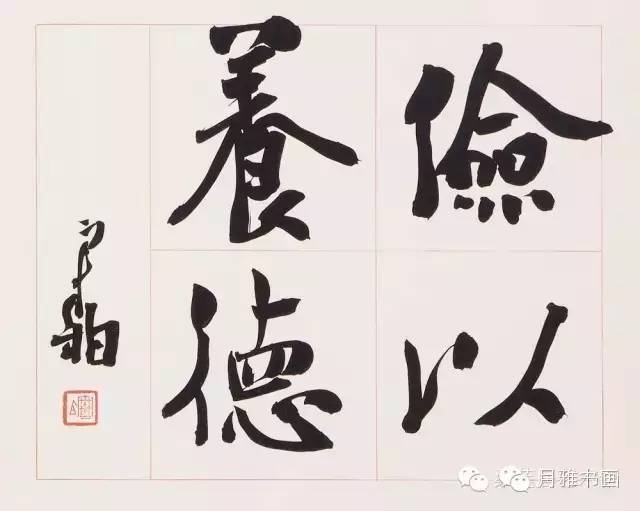 儉以
養德
月雅书画